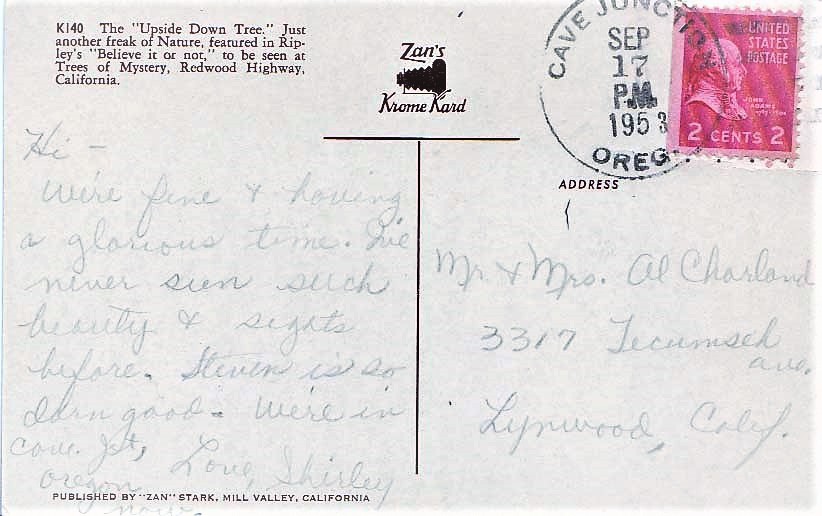 K140 The "Upside Down Tree." Just
another freak of Nature, featured in Rip-
ley's "Believe it or not," to be seen at
Trees of Mystery, Redwood Highway,
California.
Zan's
Krome Kard
CAVE JUNCTION
SEP
17
P.M.
1953
OREG.
UNITED
STATES
POSTAGE
JOHN
ADAMS
2 CENTS 2
Hi -
We're fine & having
a glorious time. I've
never seen such
beauty & sights
before. Steven is so
darn good - We're in
Cave Jct,
Oregon
now.
Love, Shirley
ADDRESS
Mr & Mrs. Al Charland
3317 Tecumseh
ave.
Lynwood, Calif.
PUBLISHED BY "ZAN" STARK, MILL VALLEY, CALIFORNIA